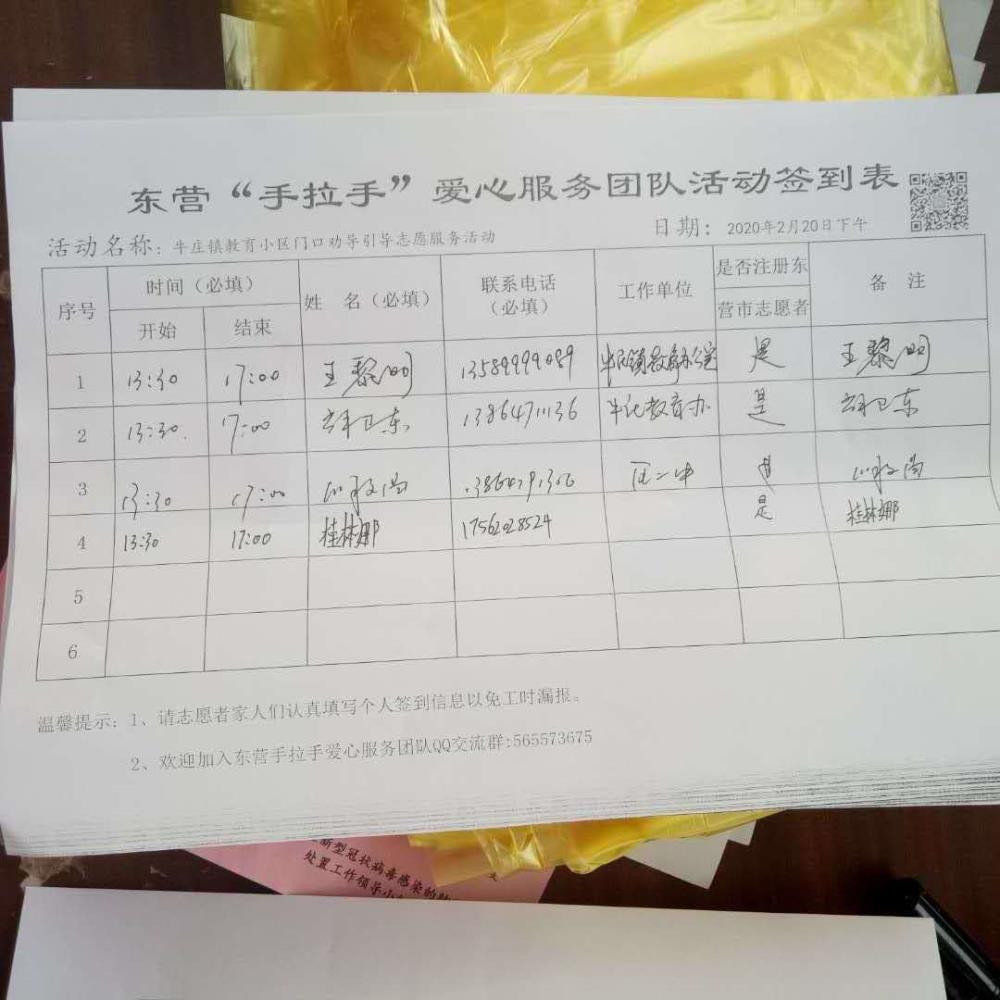 东营“手拉手”爱心服务团队活动签到表
活动名称：牛庄镇教育小区门口劝导引导志愿服务活动 日期：2020年2月20日下午
序号 时间（必填） 姓 名（必填） 联系电话（必填） 工作单位 是否注册东营市志愿者 备 注
开始 结束
1 13:30 17:00 王黎明 13589999089 是 王黎明
2 13:30 17:00 13864711136 是
3 13:30 17:00
4 13:30 17:00 桂林娜 17562028524 是 桂林娜
5
6
温馨提示：1、请志愿者家人们认真填写个人签到信息以免工时漏报。
2、欢迎加入东营手拉手爱心服务团队QQ交流群:565573675
新型冠状病毒感染的肺
处置工作领导小